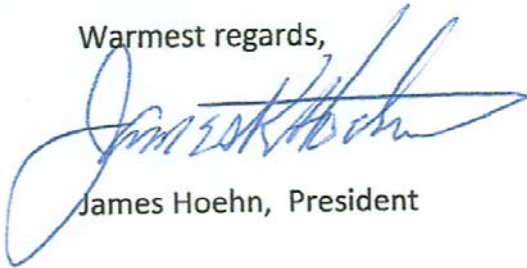 Warmest regards,
James K Hoehn
James Hoehn,  President